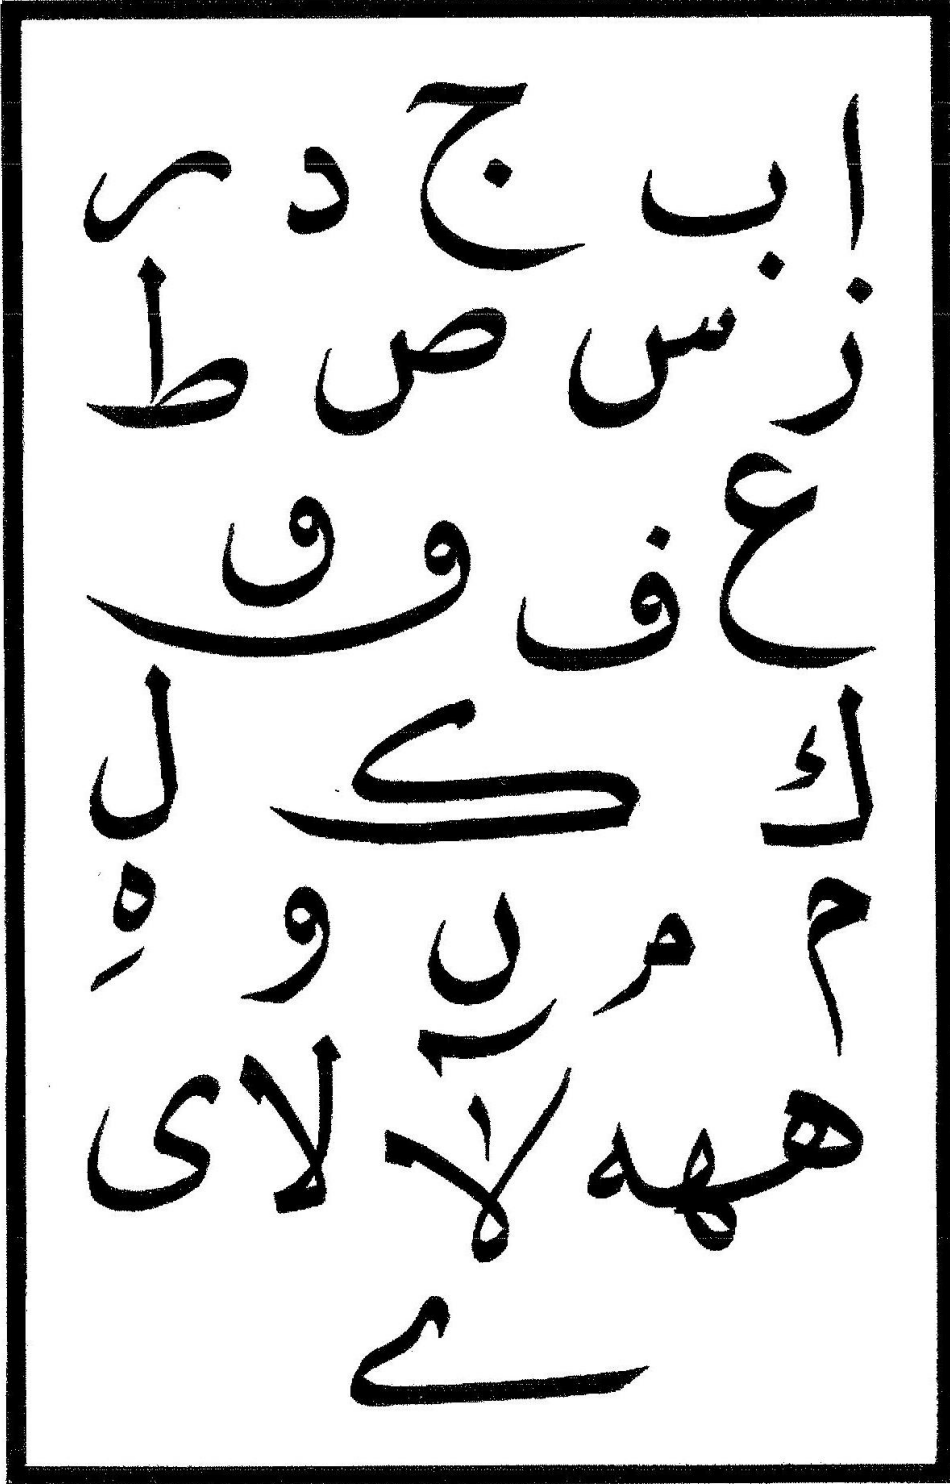 ا ب ج د ر
ز س ص ط
ع ف ٯ ٯ
ك ک ل
م م ں و هِ
ههه لا لا ى
ے